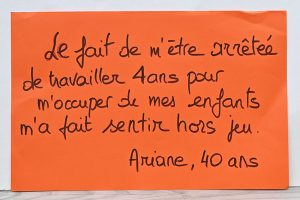 Le fait de m'être arrêtée
de travailler 4 ans pour
m'occuper de mes enfants
m'a fait sentir hors jeu.
Ariane, 40 ans